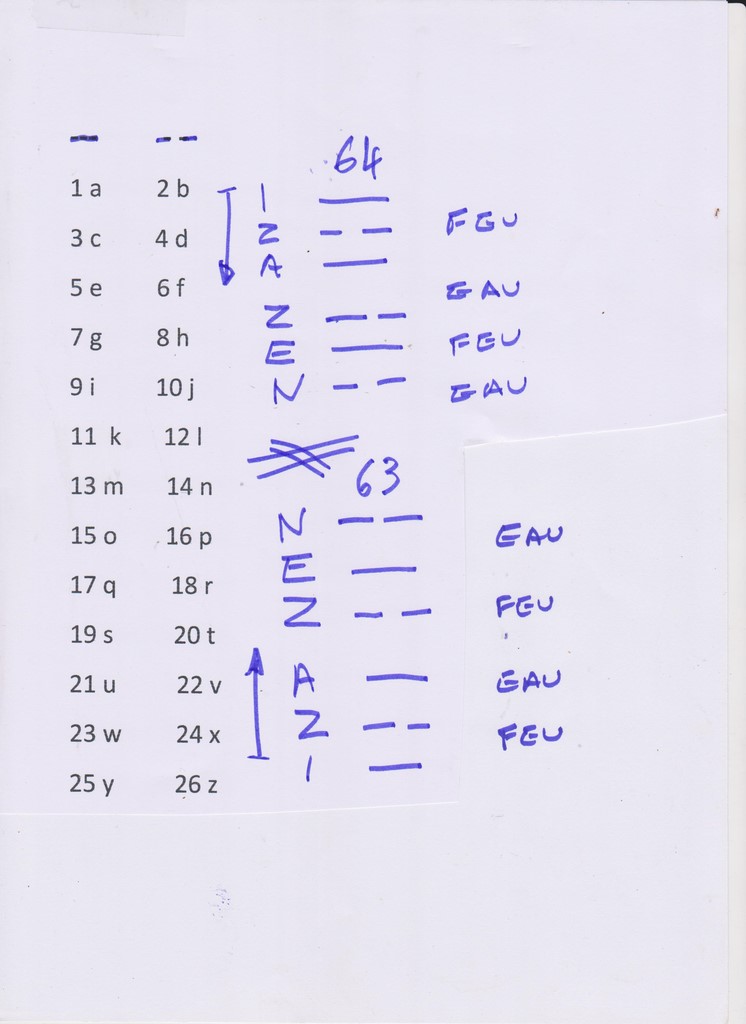 64
1 a 2 b I
Z FEU
3 c 4 d
A
5 e 6 f EAU
Z
7 g 8 h E FEU
9 i 10 j N EAU
11 k 12 l
63
13 m 14 n
N
15 o 16 p EAU
E
17 q 18 r
Z FEU
19 s 20 t
21 u 22 v A EAU
23 w 24 x Z FEU
I
25 y 26 z